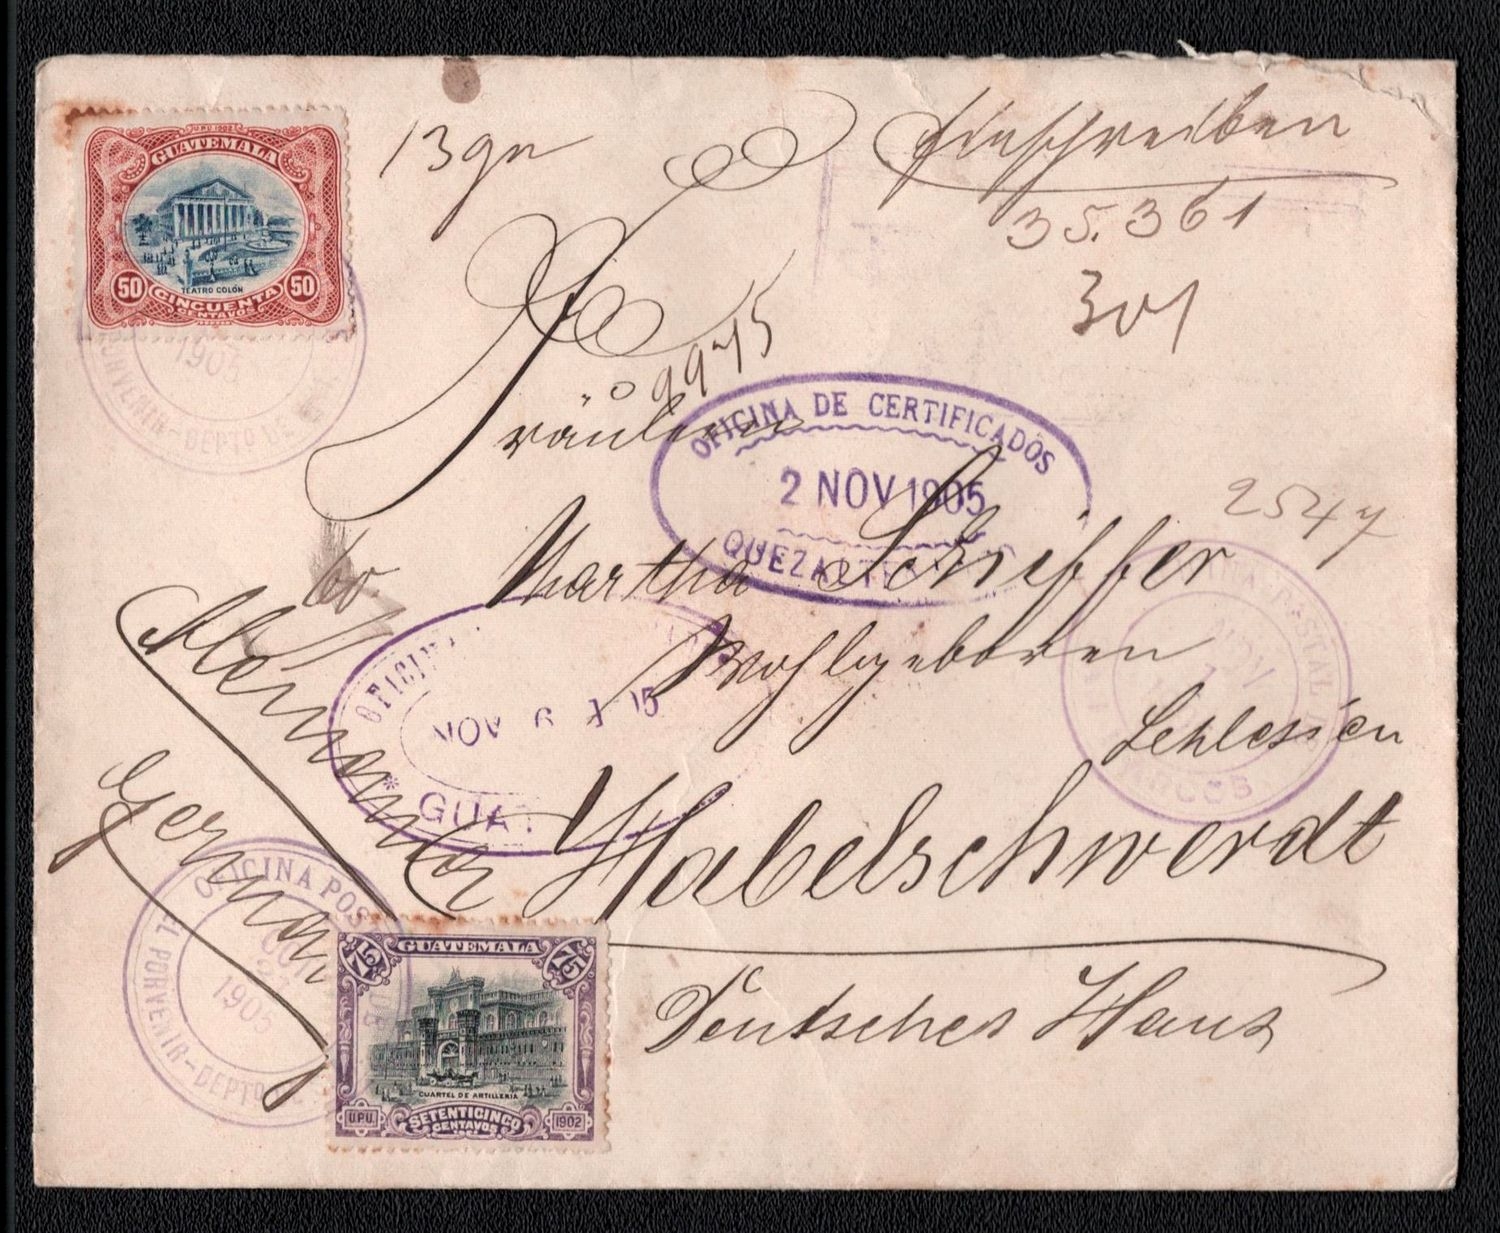 U.P.U. 1902
GUATEMALA
TEATRO COLÓN
50 CINCUENTA 50
CENTAVOS
13 gr
Einschreiben
35.361
301
9975
1905
PORVENIR-DEPTO DE
Fräulein
OFICINA DE CERTIFICADOS
2 NOV 1905
2547
Martha Schiffer
Wohlgeboren
OFICINA
NOV 6
GUAT
POSTAL
NOV
MARCOS
Schlesien
Habelschwerdt
Deutsches Haus
Alemania
Germany
OFICINA POS
OCT
1905
EL PORVENIR-DEPTO
GUATEMALA
75 75
CUARTEL DE ARTILLERIA
U.P.U. SETENTICINCO 1902
CENTAVOS